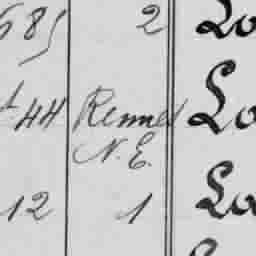 685 2 Lo
44 Rennes Lo
N. E.
12 1 Lo